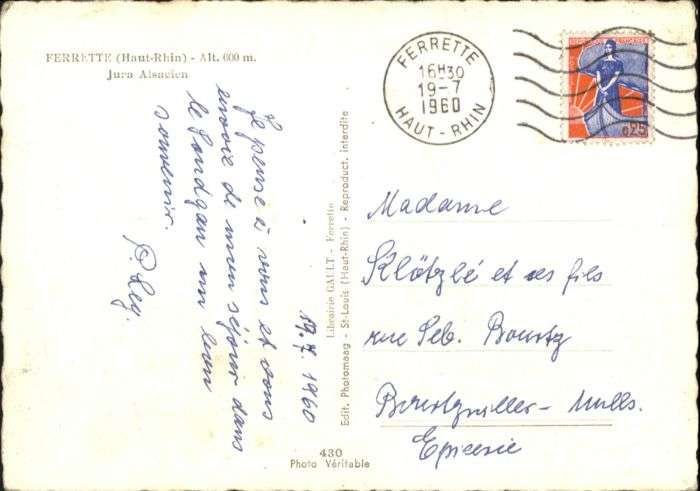 FERRETTE (Haut-Rhin) - Alt. 600 m.
Jura Alsacien
FERRETTE
16H30
19-7
1960
HAUT-RHIN
0,25
19.7.1960
Je pense à vous et vous
envoie de mon séjour dans
le Sundgau un bon
souvenir.
P. Ley.
Librairie GAULT - Ferrette
Edit. Photomaag - St-Louis (Haut-Rhin) - Reproduct. interdite
Madame
Klötzlé et ses fils
rue Seb. Bourtz
Bourtzwiller - Mulh.
Epicerie
430
Photo Véritable